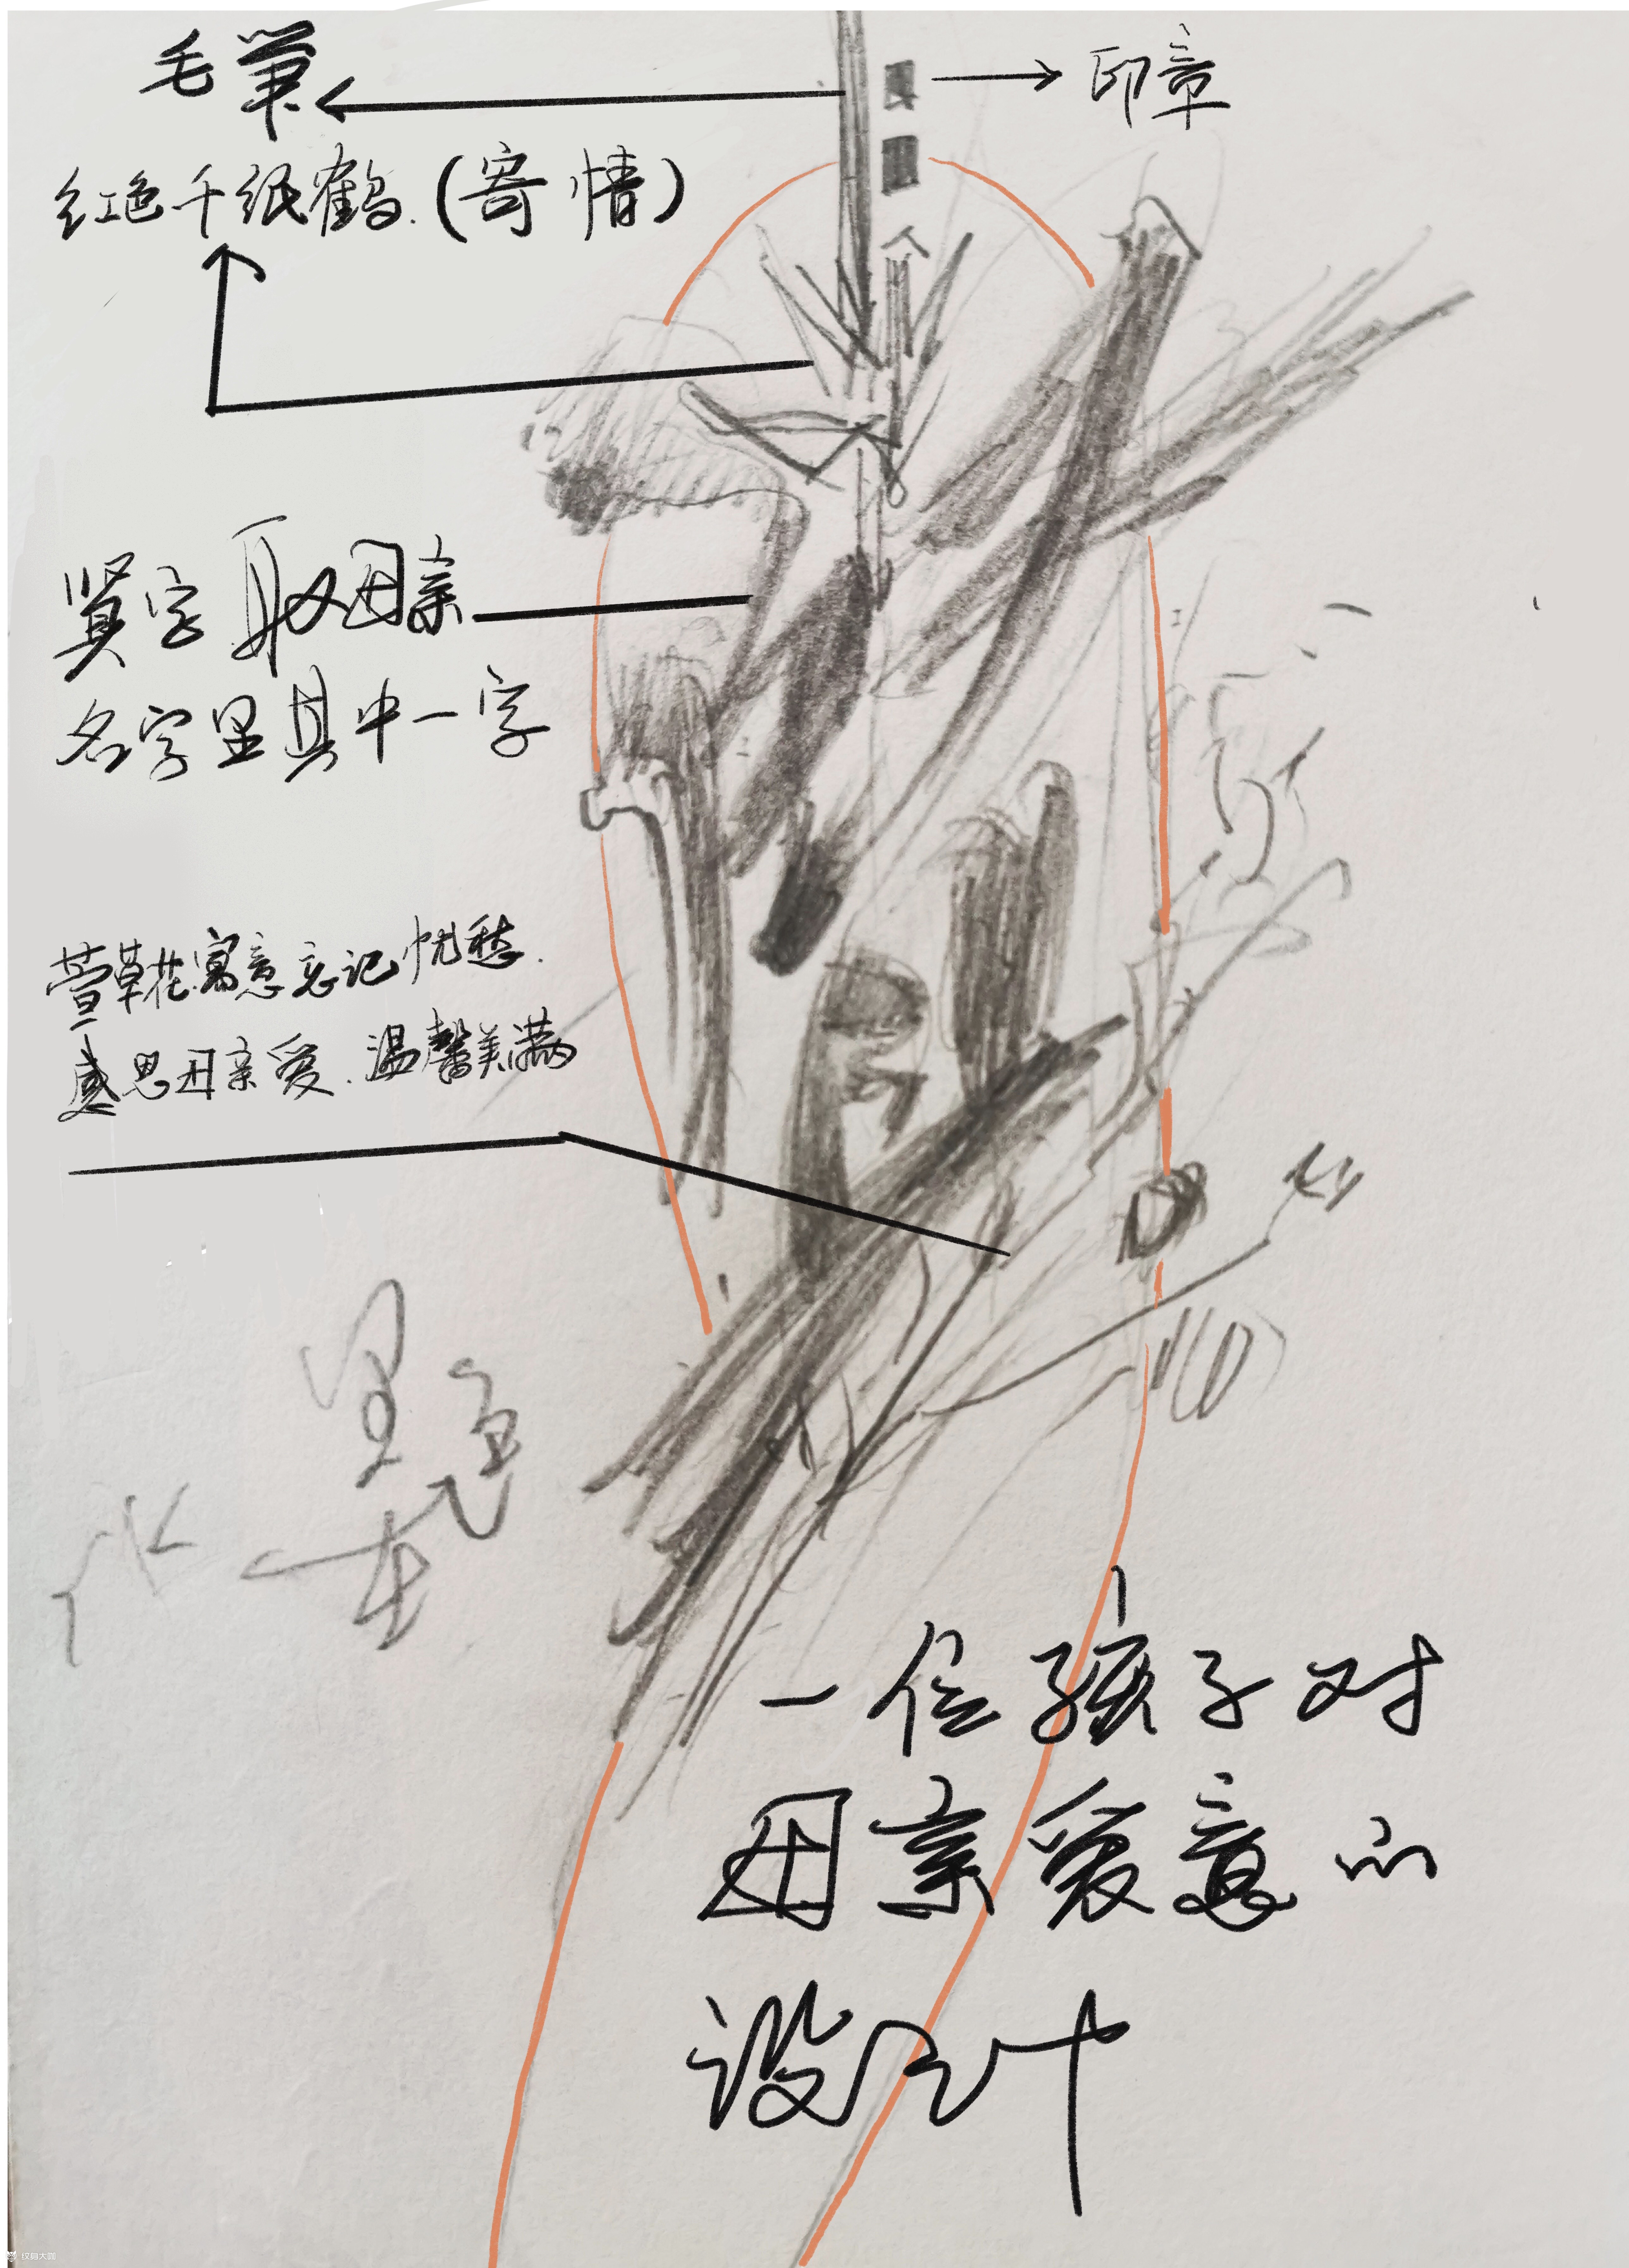 毛笔
印章
红色千纸鹤.(寄情)
贤字取母亲
名字里其中一字
萱草花寓意忘记忧愁.
感恩母亲爱.温馨美满
一位孩子对
母亲爱意的
设计
纹身大咖